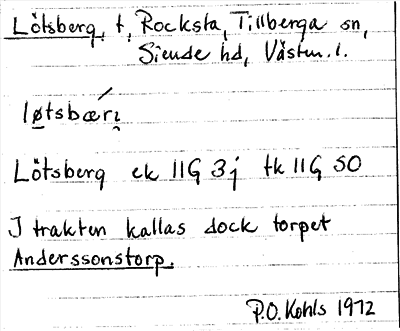 Lötsberg, t, Rocksta, Tillberga sn,
Siende hd, Västm. l.
løtsbæri̯
Lötsberg ek 11G 3j tk 11G SO
I trakten kallas dock torpet
Anderssonstorp.
P.O. Kohls 1972